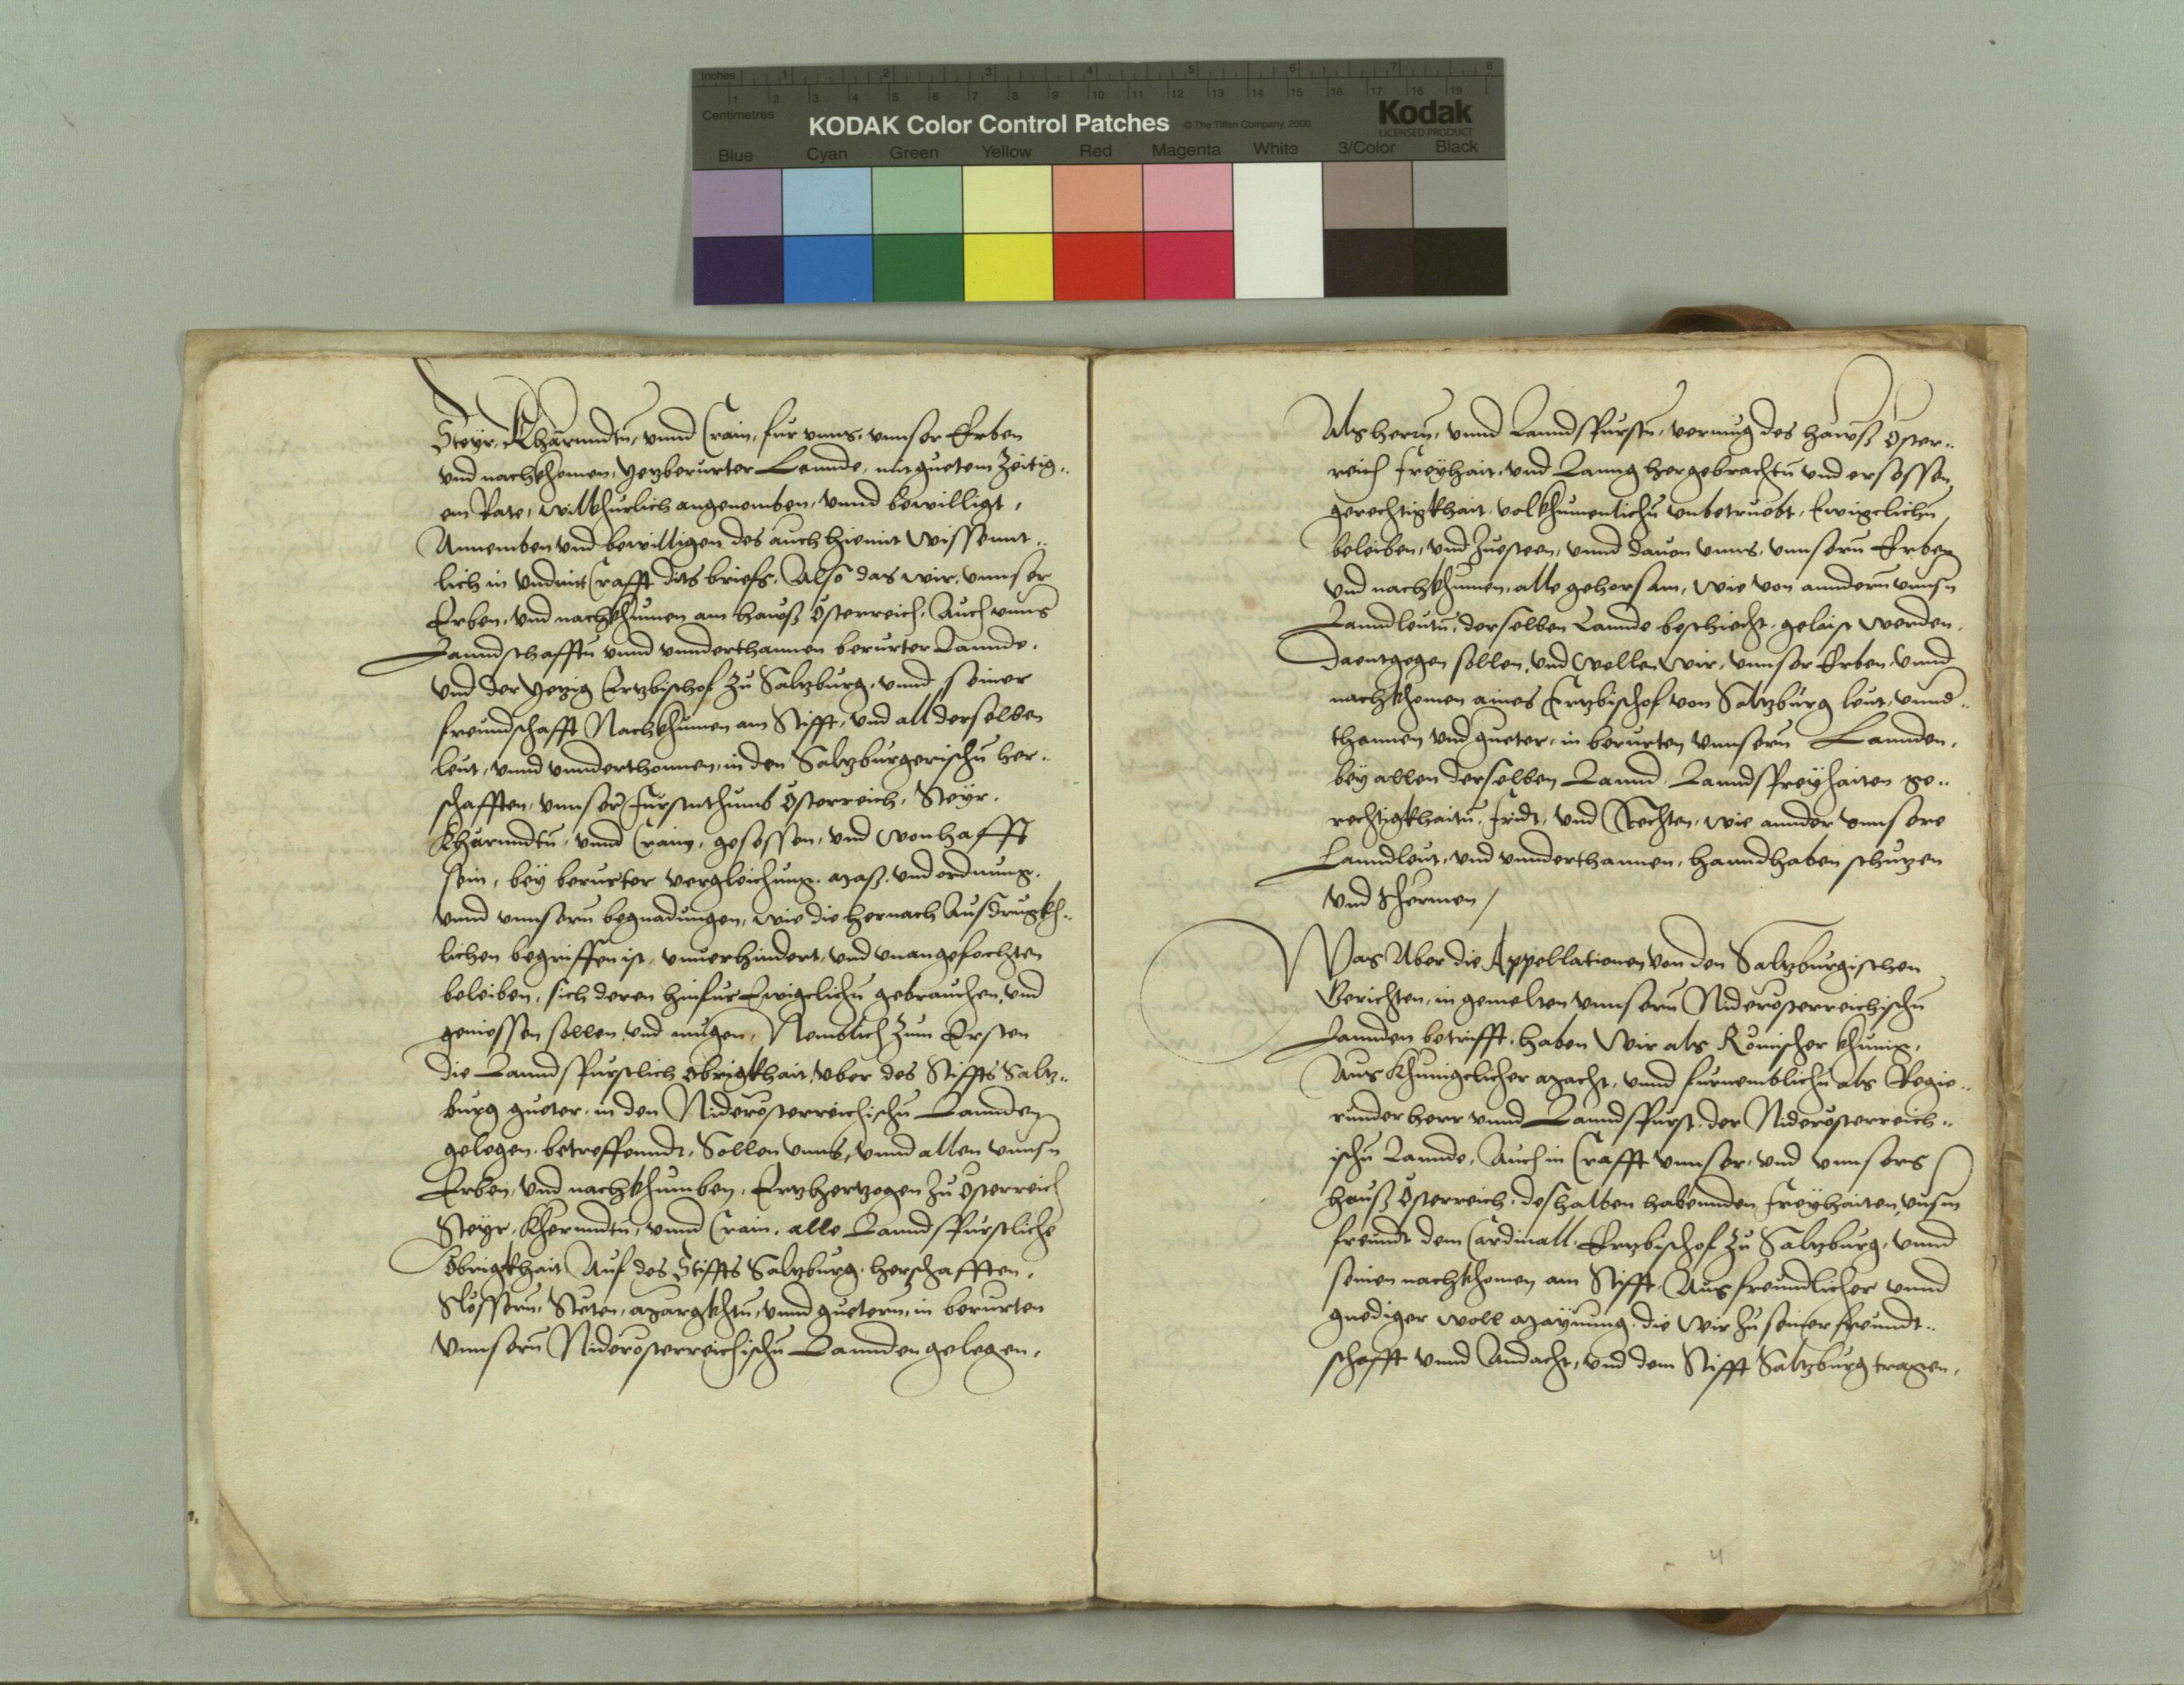 Inches 1 2 3 4 5 6 7 8
Centimetres 1 2 3 4 5 6 7 8 9 10 11 12 13 14 15 16 17 18 19
KODAK Color Control Patches © The Tiffen Company, 2000 Kodak
LICENSED PRODUCT
Blue Cyan Green Yellow Red Magenta White 3/Color Black
Steyr, Khärnndtn, vnnd Crain, fur vnns, vnnser Erben
vnd nachkhomen, Yezberurter Lannde, mit guetem Zeitig..
em Rate, willkhurlich angenomben, vnnd bewilligt,
Annemben vnd bewilligen des auch hiemit wissennt..
lich in vnd mit Crafft dits briefs, Also das wir, vnnser
Erben, vnd nachkhumen am hauß Österreich, Auch vnns
Lanndschafften vnnd vnnderthannen berurter Lannde,
vnd der Yezig Ertzbischof zu Saltzburg, vnnd seiner
freundschafft Nachkhumen am Stifft, vnd all derselben
leut, vnnd vnnderthonnen, in den Saltzburgerischn her..
schafften, vnnser furstnthumb Österreich, Steyr,
Khärnndtn, vnnd Crain, gesessen, vnd wonhafft
sein, bey berurter vergleichung, maß, vnd ordnung,
vnnd vnnsern begnadungen, wie die hernach Ausdrugkh..
lichen begriffen ist, vnuerhindert, vnd vnangefochten
beleiben, sich deren hinfur Ewigclichn gebrauchen, vnd
geniessen sollen, vnd mugen, Nemblich zum Ersten
die Lanndsfurstlich obrigkhait, vber des Stiffts Saltz..
burg gueter, in den Niderösterreichischn Lannden
gelegen, betreffenndt, Sollen vnns, vnnd allen vnnsn
Erben, vnd nachkhumben, Ertzhertzogen zu Österreich
Steyr, Khernndtn, vnnd Crain, alle Lanndsfurstliche
Obrigkhait Auf des Stiffts Saltzburg, herschafften,
Slössern, Steten, margkhtn, vnnd guetern, in berurten
vnnsern Niderösterreichischn Lannden gelegen,
Als herrn, vnnd Lanndsfurstn, vermug des hauß Öster..
reich freyhait, vnd Lanng hergebrachtn vnd ersessen
gerechtigkhait, volkhumenlichn vnbetruebt, Ewigclichn,
beleiben, vnd zuesteen, vnnd dauon vnns, vnnsern Erben
vnd nachkhumen, alle gehorsam, wie von anndern vnnsn
Lanndleutn, derselben Lannde beschiecht, gelaist werden,
Daentgegen sollen, vnd wellen wir, vnnser Erben, vnnd
nachkhomen aines Ertzbischof von Saltzburg leut, vnnd..
thannen vnd gueter, in berurten vnnsern Lannden,
bey allen derselben Lannd, Lanndsfreyhaiten ge..
rechtigkhaitn, fridt, vnd Rechten, wie annder vnnsere
Lanndleut, vnd vnnderthannen, hanndhaben schutzen
vnd schermen /
Was Aber die Appellationen von den Saltzburgischen
Gerichten, in gemelten vnnsern Niderösterreichischn
Lannden betrifft, haben Wir als Römischer khunig,
Aus khunigclicher macht, vnnd furnemblichn als Regie..
runder herr vnnd Lanndsfurst, der Niderösterreich..
ischn Lannde, Auch in Crafft vnnser, vnd vnnsers
hauß Österreich, deshalben habennden freyhaiten, vnsn
freundt dem Cardinall, Ertzbischof zu Saltzburg, vnnd
seinen nachkhomen am Stifft, Aus freundlicher vnnd
gnediger woll maynung, die wir zu seiner freundt..
schafft vnnd Andacht, vnd dem Stifft Saltzburg tragen,
4